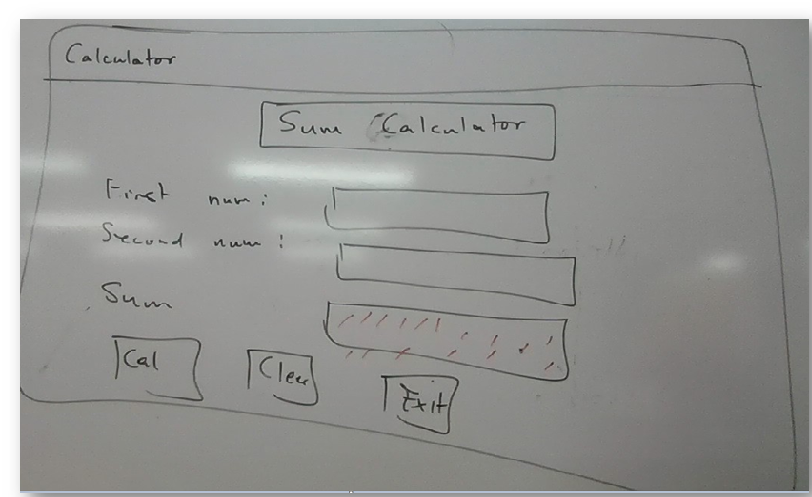 Calculator
Sum Calculator
First num:
Second num:
Sum
Cal
Clear
Exit